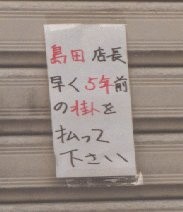 島田 店長
早く5年前
の掛を
払って
下さい